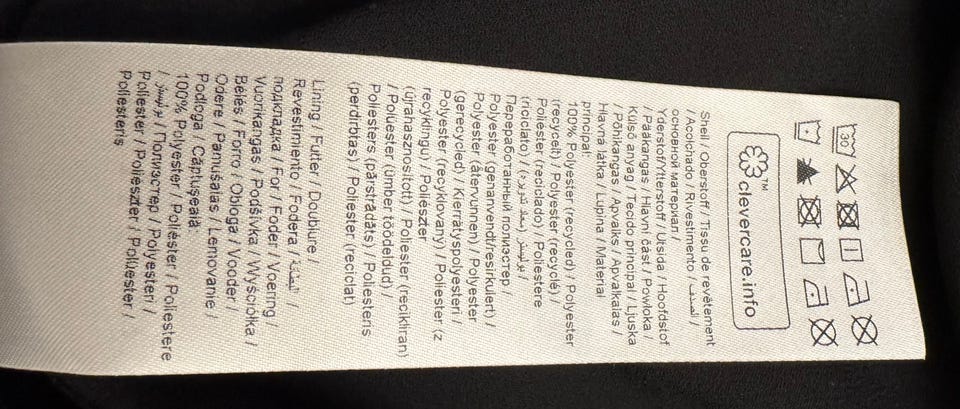 30
clevercare.info™
Shell / Oberstoff / Tissu de revêtement
/ Acolchado / Rivestimento / الصدف /
основной материал: /
Yderstof/Ytterstoff / Utsida / Hoofdstof
/ Pääkangas / Hlavní část / Powłoka /
Külső anyag / Tecido principal / Ljuska
/ Põhikangas / Apvalks / Apvalkalas /
Hlavná látka / Lupina / Material
principal:
100% Polyester (recycled) / Polyester
(recycelt) / Polyester (recyclé) /
Poliéster (reciclado) / Poliestere
(riciclato) / بوليستر (معاد تدويره) /
Переработанный полиэстер /
Polyester (genanvendt/resirkulert) /
Polyester (återvunnen) / Polyester
(gerecycled) / Kierrätyspolyesteri /
Polyester (recyklovaný) / Poliester (z
recyklingu) / Poliészter
(újrahasznosított) / Poliester (recikliran)
/ Polüester (ümber töödeldud) /
Poliesters (pārstrādāts) / Poliesteris
(perdirbtas) / Poliester (reciclat)
Lining / Futter / Doublure /
Revestimiento / Fodera / البطانة /
подкладка / For / Foder / Voering /
Vuorikangas / Podšívka / Wyściółka /
Bélés / Forro / Obloga / Vooder /
Odere / Pamušalas / Lemovanie /
Podloga / Căptușeală
100% Polyester / Poliéster / Poliestere
/ بوليستر / Полиэстер / Polyesteri /
Poliester / Poliészter / Polüester /
Poliesteris